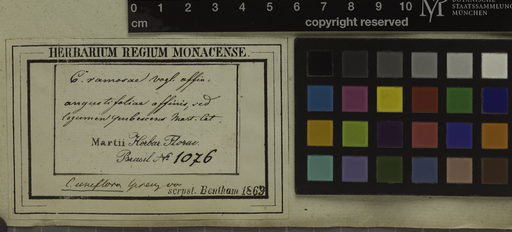 0 1 2 3 4 5 6 7 8 9 10
cm
copyright reserved
BOTANISCHE
STAATSSAMMLUNG
MÜNCHEN
HERBARIUM REGIUM MONACENSE.
C. ramosae vogl. affin.
angustifoliae affinis, sed
legumen pubescens Mart.
Martii Herbar. Florae
Brasil. No 1076
C. uniflora Spreng. var
scrpst. Bentham 1869